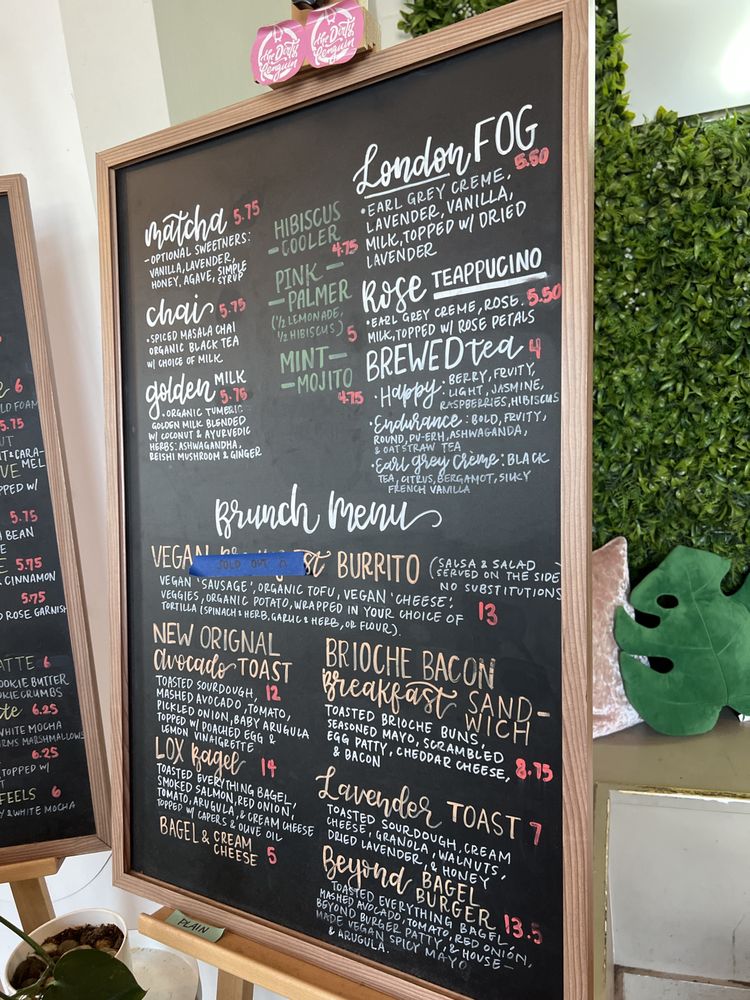 the Dirty Penguin
the Dirty Penguin
matcha 5.75
- OPTIONAL SWEETNERS:
VANILLA, LAVENDER,
HONEY, AGAVE, SIMPLE
SYRUP
chai 5.75
• SPICED MASALA CHAI
ORGANIC BLACK TEA
W/ CHOICE OF MILK
golden MILK
5.75
• ORGANIC TUMERIC
GOLDEN MILK BLENDED
W/ COCONUT & AYURVEDIC
HERBS: ASHWAGANDHA,
REISHI MUSHROOM & GINGER
HIBISCUS
- COOLER
4.75
PINK -
- PALMER
(1/2 LEMONADE,
1/2 HIBISCUS) 5
MINT -
- MOJITO
4.75
London FOG
5.50
• EARL GREY CREME,
LAVENDER, VANILLA,
MILK, TOPPED W/ DRIED
LAVENDER
Rose TEAPPUCINO
• EARL GREY CREME, ROSE, 5.50
MILK, TOPPED W/ ROSE PETALS
BREWED tea 4
• Happy: BERRY, FRUITY,
LIGHT, JASMINE,
RASPBERRIES, HIBISCUS
• Endurance: BOLD, FRUITY,
ROUND, PU-ERH, ASHWAGANDA,
& OATSTRAW TEA
• Earl grey Creme: BLACK
TEA, CITRUS, BERGAMOT, SILKY
FRENCH VANILLA
Brunch Menu
VEGAN BURRITO (SALSA & SALAD
SOLD OUT
SERVED ON THE SIDE
NO SUBSTITUTIONS
VEGAN 'SAUSAGE', ORGANIC TOFU, VEGAN 'CHEESE',
VEGGIES, ORGANIC POTATO, WRAPPED IN YOUR CHOICE OF 13
TORTILLA (SPINACH & HERB, GARLIC & HERB, OR FLOUR).
NEW ORIGNAL
Avocado TOAST
TOASTED SOURDOUGH, 12
MASHED AVOCADO, TOMATO,
PICKLED ONION, BABY ARUGULA
TOPPED W/ POACHED EGG &
LEMON VINAIGRETTE
LOX Bagel 14
TOASTED EVERYTHING BAGEL,
SMOKED SALMON, RED ONION,
TOMATO, ARUGULA, & CREAM CHEESE
TOPPED W/ CAPERS & OLIVE OIL
BAGEL & CREAM
CHEESE 5
BRIOCHE BACON
Breakfast SAND-
WICH
TOASTED BRIOCHE BUNS,
SEASONED MAYO, SCRAMBLED
EGG PATTY, CHEDDAR CHEESE, 8.75
& BACON
Lavender TOAST 7
TOASTED SOURDOUGH, CREAM
CHEESE, GRANOLA, WALNUTS,
DRIED LAVENDER, & HONEY
Beyond BAGEL
BURGER 13.5
TOASTED EVERYTHING BAGEL,
MASHED AVOCADO, TOMATO, RED ONION,
BEYOND BURGER PATTY, & HOUSE-
MADE VEGAN SPICY MAYO
& ARUGULA.
PLAIN
6
LD FOAM
5.75
T & CARA-
MEL
TOPPED W/
5.75
BEAN
5.75
CINNAMON
5.75
ROSE GARNISH
ATTE 6
OOKIE BUTTER
OKIE CRUMBS
te 6.25
WHITE MOCHA
RMS MARSHMALLOWS
6.25
TOPPED W/
FEELS 6
Y & WHITE MOCHA